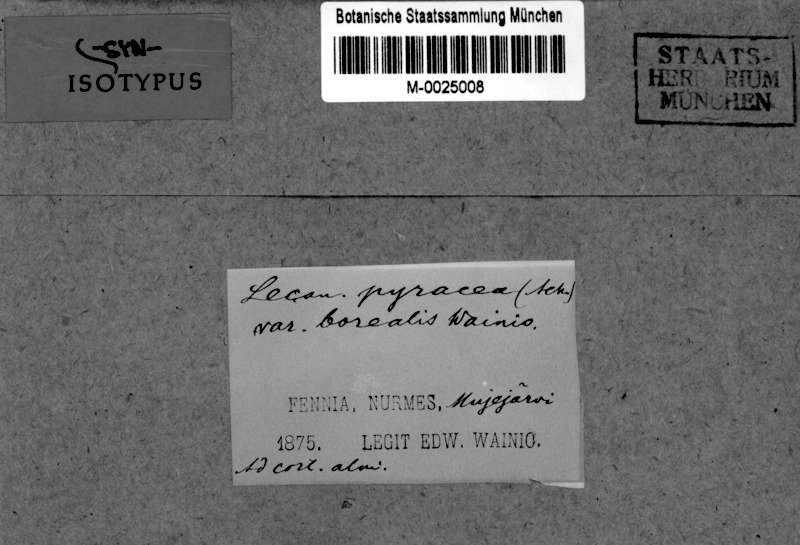 -SYN-
ISOTYPUS
Botanische Staatssammlung München
M-0025008
STAATS-
HERBARIUM
MÜNCHEN
Lecan. pyracea (Ach.)
var. borealis Wainio.
FENNIA, NURMES, Mujejärvi
1875. LEGIT EDW. WAINIO.
Ad cort. alni.